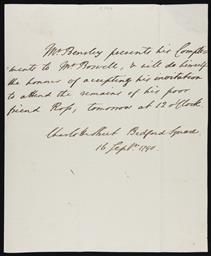 Mr. Bensley presents his Comple-
ments to Mr. Boswell, & will do himself
the honour of accepting his invitation
to attend the remains of his poor
friend Ross, tomorrow at 12 o'Clock.
Charlotte Street Bedford Square
16 Septr. 1790.